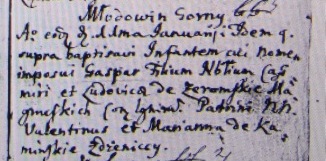 Młodowin Gorny
Ao eod d. dma Januarij Idem q.
supra baptisavi Infantem cui nomen
imposui Gaspar Filium Nbłium Cas
miri et Ludovicæ de Zeromskie Ma
gnuskich Con Patrini
Valentinus et Marianna de Ka
minskie Zdzieniccy.